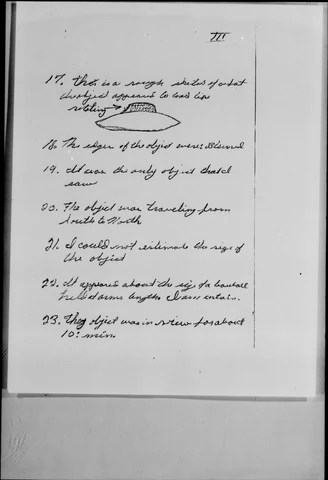 III
17. This is a rough sketch of what
the object appeared to look like
rotating
18. The edges of the object were blurred
19. It was the only object that I
saw
20. The object was traveling from
South to North
21. I could not estimate the size of
the object
22. It appeared about the size of a baseball
held at arms length, I am certain.
23. The object was in view for about
10: min.